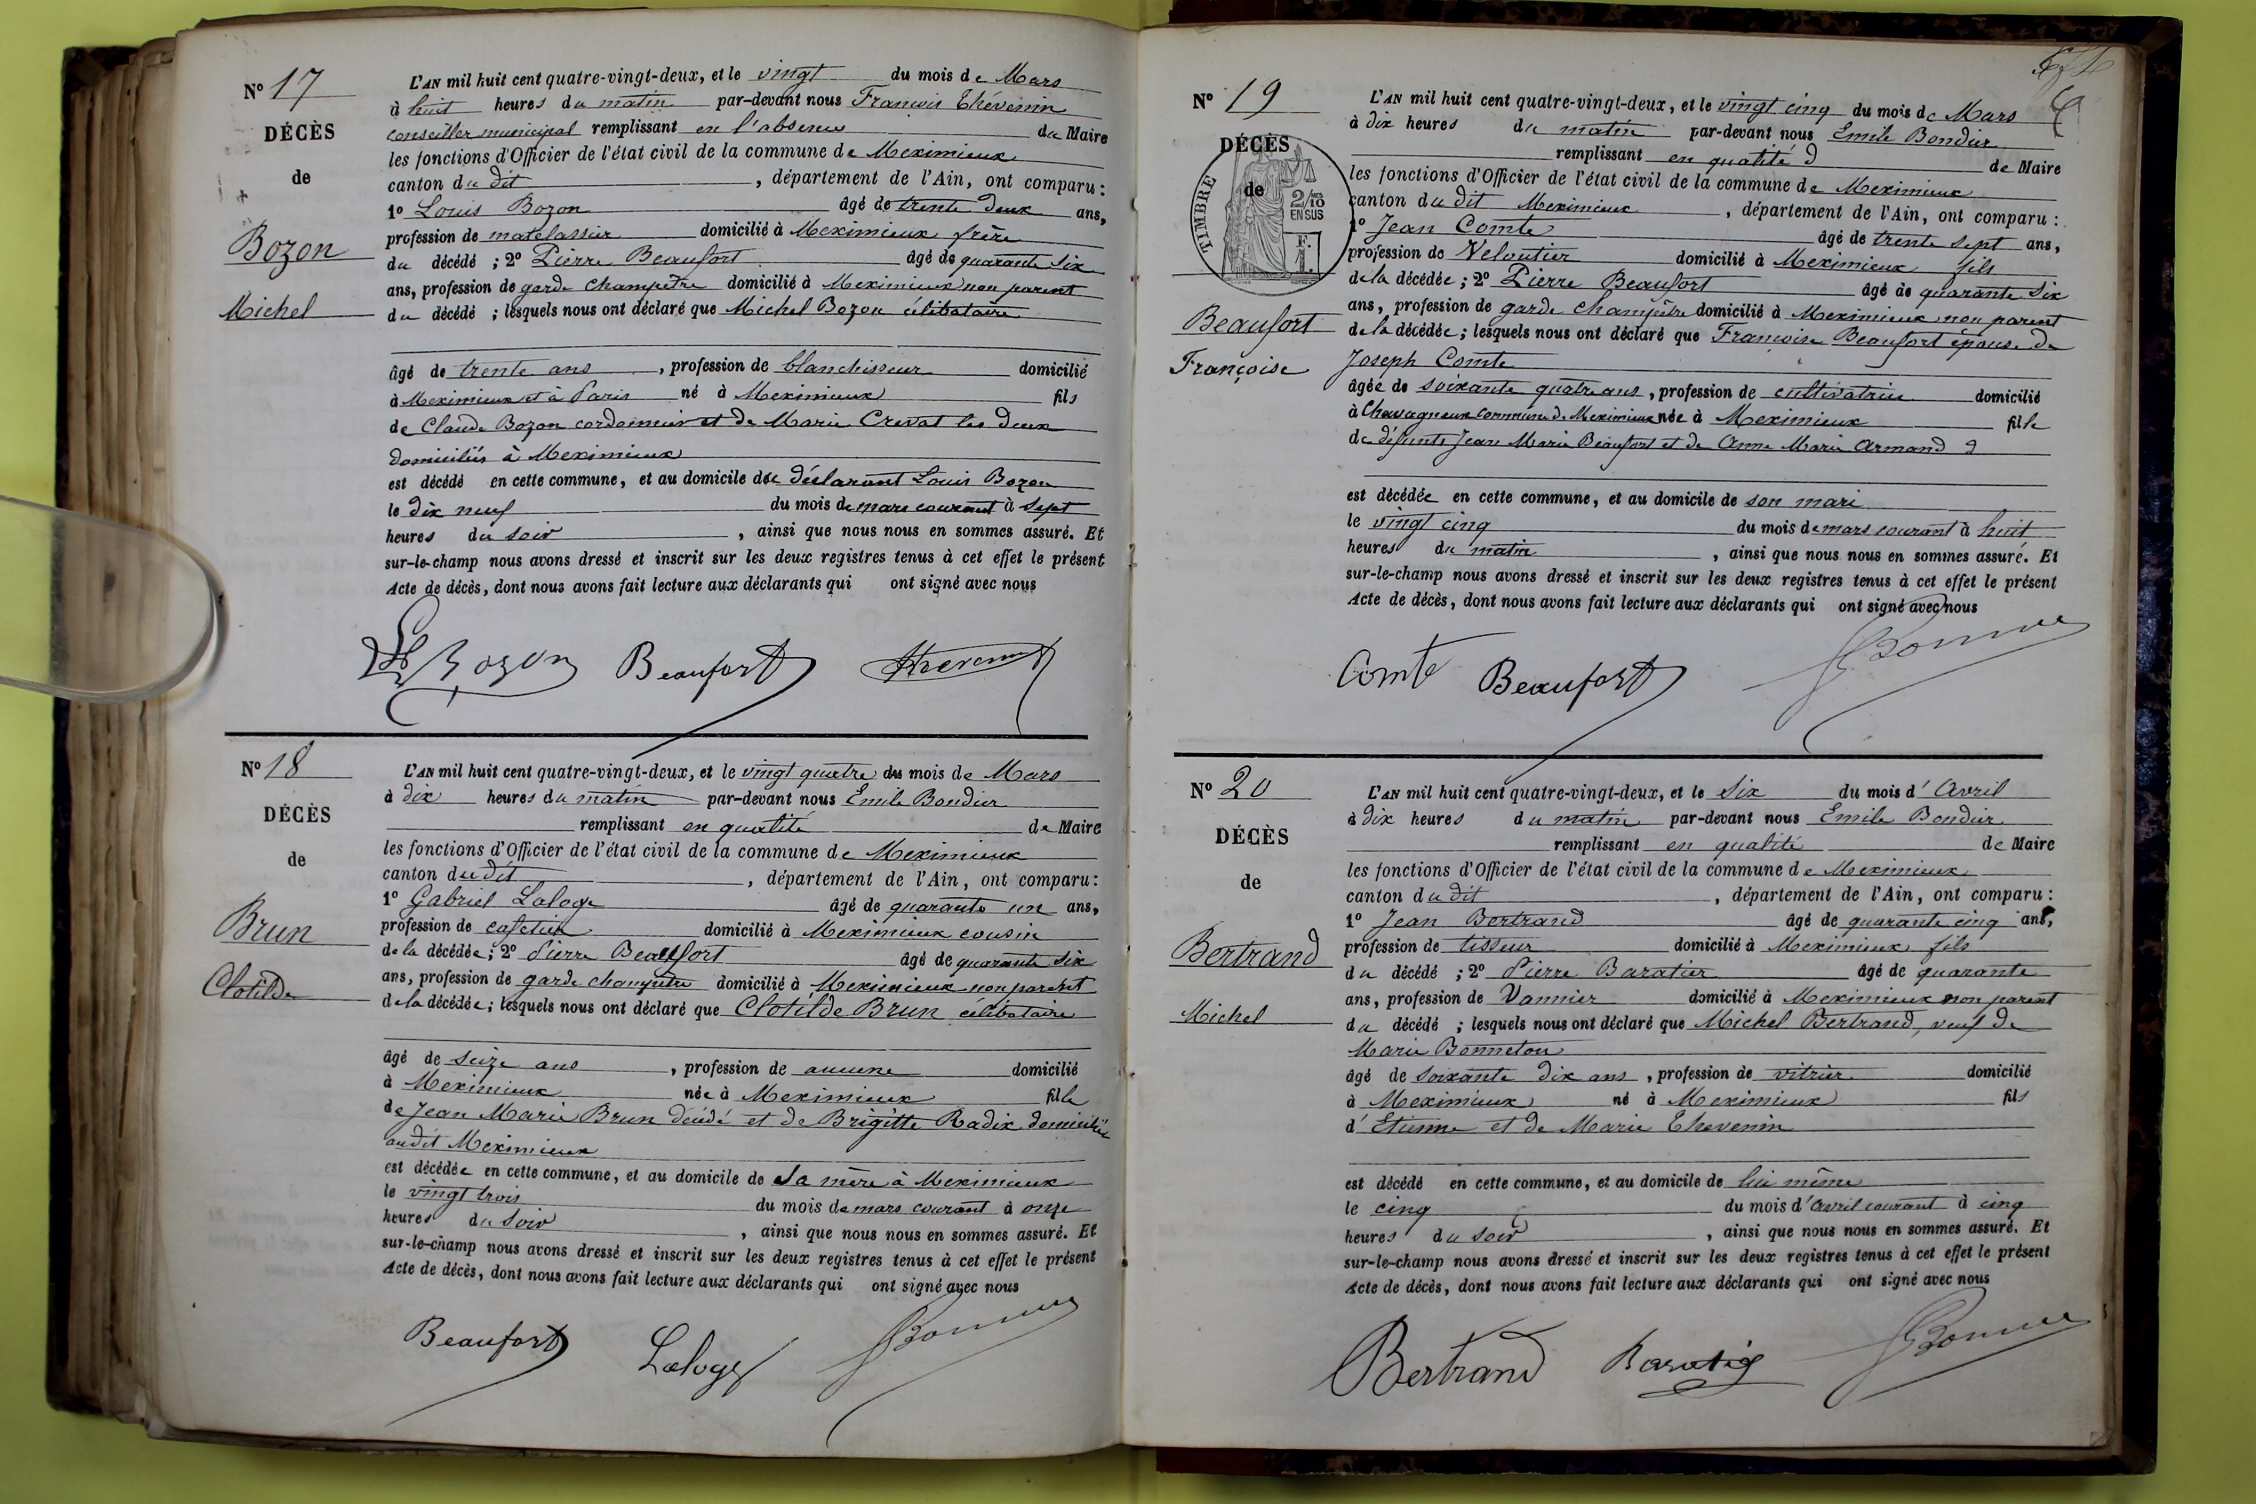 N° 17
DÉCÈS
de
Bozon
Michel
L'AN mil huit cent quatre-vingt-deux, et le vingt du mois de Mars
à huit heures du matin par-devant nous François Thévenin
conseiller municipal remplissant en l'absence du Maire
les fonctions d'Officier de l'état civil de la commune de Meximieux
canton du dit , département de l'Ain, ont comparu :
1° Louis Bozon âgé de trente deux ans,
profession de matelassier domicilié à Meximieux frère
du décédé ; 2° Pierre Beaufort âgé de quarante six
ans, profession de garde champêtre domicilié à Meximieux non parent
du décédé ; lesquels nous ont déclaré que Michel Bozon célibataire
âgé de trente ans , profession de blanchisseur domicilié
à Meximieux et à Paris né à Meximieux fils
de Claude Bozon cordonnier et de Marie Crevat les deux
domiciliés à Meximieux
est décédé en cette commune, et au domicile du déclarant Louis Bozon
le dix neuf du mois de mars courant à sept
heures du soir , ainsi que nous nous en sommes assuré. Et
sur-le-champ nous avons dressé et inscrit sur les deux registres tenus à cet effet le présent
Acte de décès, dont nous avons fait lecture aux déclarants qui ont signé avec nous
Bozon Beaufort Thevenin
N° 18
DÉCÈS
de
Brun
Clotilde
L'AN mil huit cent quatre-vingt-deux, et le vingt quatre du mois de Mars
à dix heures du matin par-devant nous Emile Bondier
remplissant en qualité de Maire
les fonctions d'Officier de l'état civil de la commune de Meximieux
canton du dit , département de l'Ain, ont comparu :
1° Gabriel Laloge âgé de quarante un ans,
profession de cafetier domicilié à Meximieux cousin
de la décédée ; 2° Pierre Beaufort âgé de quarante six
ans, profession de garde champêtre domicilié à Meximieux non parent
de la décédée ; lesquels nous ont déclaré que Clotilde Brun célibataire
âgé de seize ans , profession de aucune domicilié
à Meximieux née à Meximieux fille
de Jean Marie Brun décédé et de Brigitte Radix domiciliée
audit Meximieux
est décédée en cette commune, et au domicile de sa mère à Meximieux
le vingt trois du mois de mars courant à onze
heures du soir , ainsi que nous nous en sommes assuré. Et
sur-le-champ nous avons dressé et inscrit sur les deux registres tenus à cet effet le présent
Acte de décès, dont nous avons fait lecture aux déclarants qui ont signé avec nous
Beaufort Laloge
N° 19
DÉCÈS
de
TIMBRE
2/10
EN SUS
F.
1.
Beaufort
Françoise
L'AN mil huit cent quatre-vingt-deux, et le vingt cinq du mois de Mars
à dix heures du matin par-devant nous Emile Bondier
remplissant en qualité d de Maire
les fonctions d'Officier de l'état civil de la commune de Meximieux
canton du dit Meximieux , département de l'Ain, ont comparu :
1° Jean Comte âgé de trente sept ans,
profession de Veloutier domicilié à Meximieux fils
de la décédée ; 2° Pierre Beaufort âgé de quarante six
ans, profession de garde champêtre domicilié à Meximieux non parent
de la décédée ; lesquels nous ont déclaré que Françoise Beaufort épouse de
Joseph Comte
âgée de soixante quatre ans , profession de cultivatrice domicilié
à Chavagneux commune de Meximieux née à Meximieux fille
de défunts Jean Marie Beaufort et de Anne Marie Armand
est décédée en cette commune, et au domicile de son mari
le vingt cinq du mois de mars courant à huit
heures du matin , ainsi que nous nous en sommes assuré. Et
sur-le-champ nous avons dressé et inscrit sur les deux registres tenus à cet effet le présent
Acte de décès, dont nous avons fait lecture aux déclarants qui ont signé avec nous
Comte Beaufort
N° 20
DÉCÈS
de
Bertrand
Michel
L'AN mil huit cent quatre-vingt-deux, et le six du mois d'Avril
à dix heures du matin par-devant nous Emile Bondier
remplissant en qualité de Maire
les fonctions d'Officier de l'état civil de la commune de Meximieux
canton du dit , département de l'Ain, ont comparu :
1° Jean Bertrand âgé de quarante cinq ans,
profession de tisseur domicilié à Meximieux fils
du décédé ; 2° Pierre Baratier âgé de quarante
ans, profession de Vannier domicilié à Meximieux non parent
du décédé ; lesquels nous ont déclaré que Michel Bertrand, veuf de
Marie Bonneton
âgé de soixante dix ans , profession de vitrier domicilié
à Meximieux né à Meximieux fils
d'Etienne et de Marie Thevenin
est décédé en cette commune, et au domicile de lui même
le cinq du mois d'avril courant à cinq
heures du soir , ainsi que nous nous en sommes assuré. Et
sur-le-champ nous avons dressé et inscrit sur les deux registres tenus à cet effet le présent
Acte de décès, dont nous avons fait lecture aux déclarants qui ont signé avec nous
Bertrand